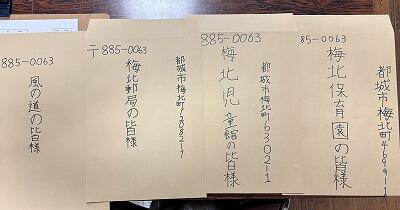 885-0063
風の道の皆様
〒885-0063
都城市梅北町1382-1
梅北郵局の皆様
885-0063
都城市梅北町6302-1
梅北児童館の皆様
85-0063
都城市梅北町4699-1
梅北保育園の皆様